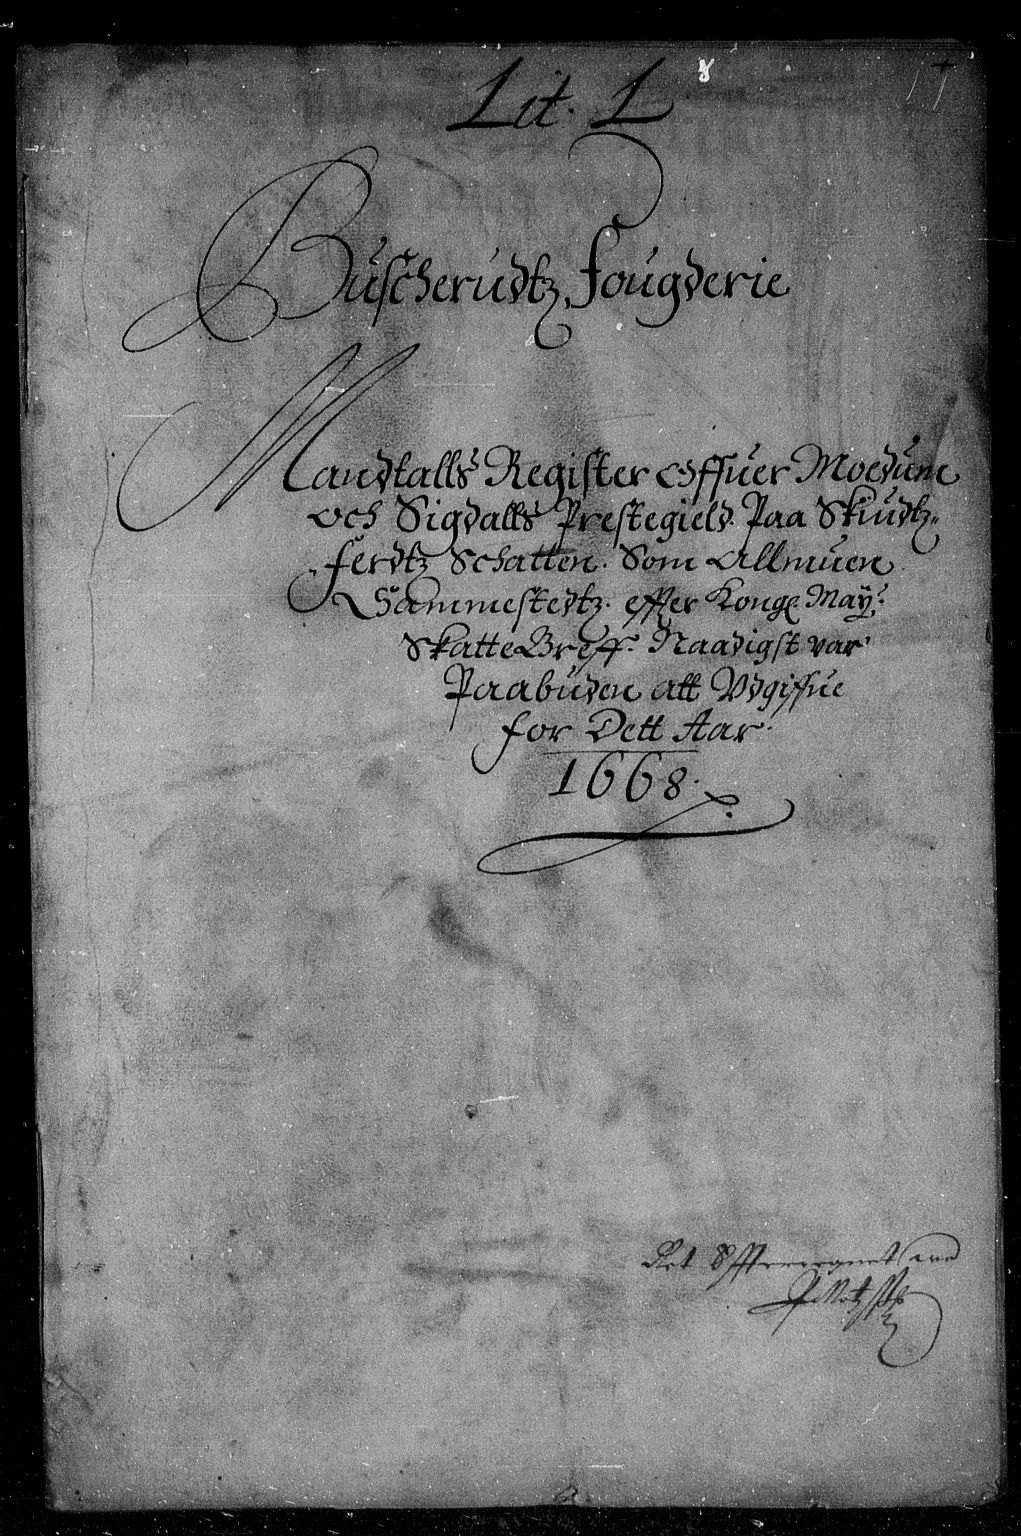 Lit. L
Buscherudtz Fougderie
Mandtalls Register Offuer Modumbs
och Sigdalls Prestegield. Paa Skiudtz-
ferdtz Schatten. Som Allmuen
Sammestedtz. effter Kongl. May:
Skatte Breff. Naadigst var
Paabuden att Vdgiffue
for Dett Aar
1668.